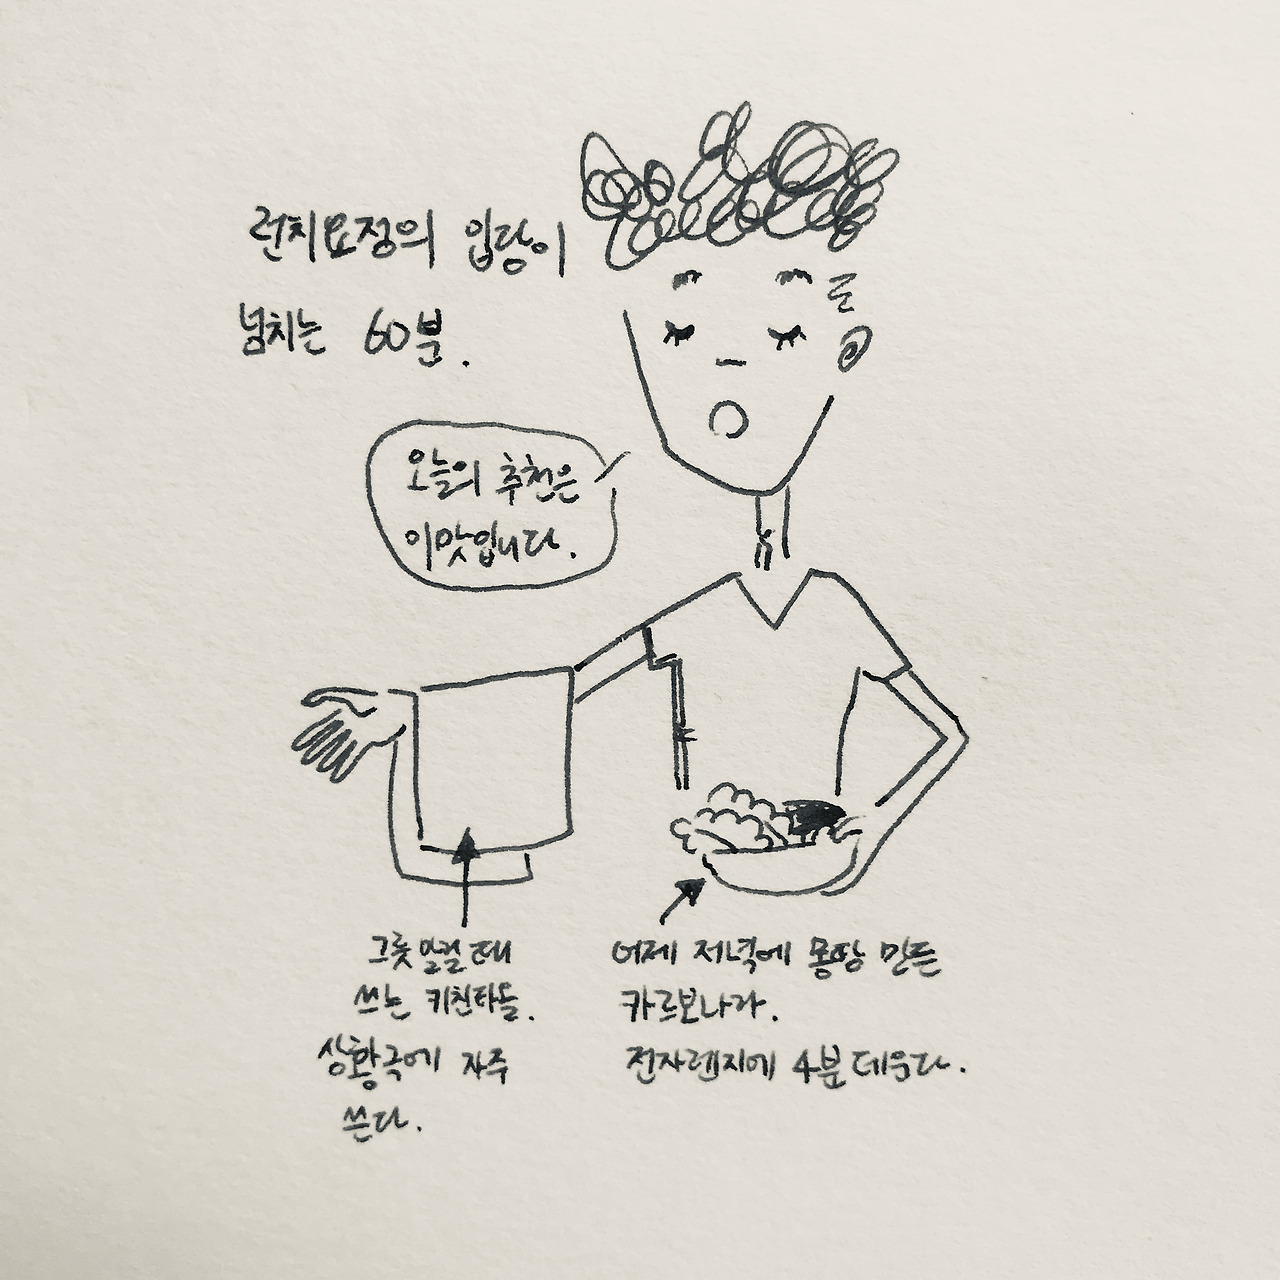 런치요정의 입담이
넘치는 60분.
오늘의 추천은
이맛입니다.
그릇 말릴 때
쓰는 키친타올.
상황극에 자주
쓴다.
어제 저녁에 몽땅 만든
카르보나라.
전자렌지에 4분 데우다.